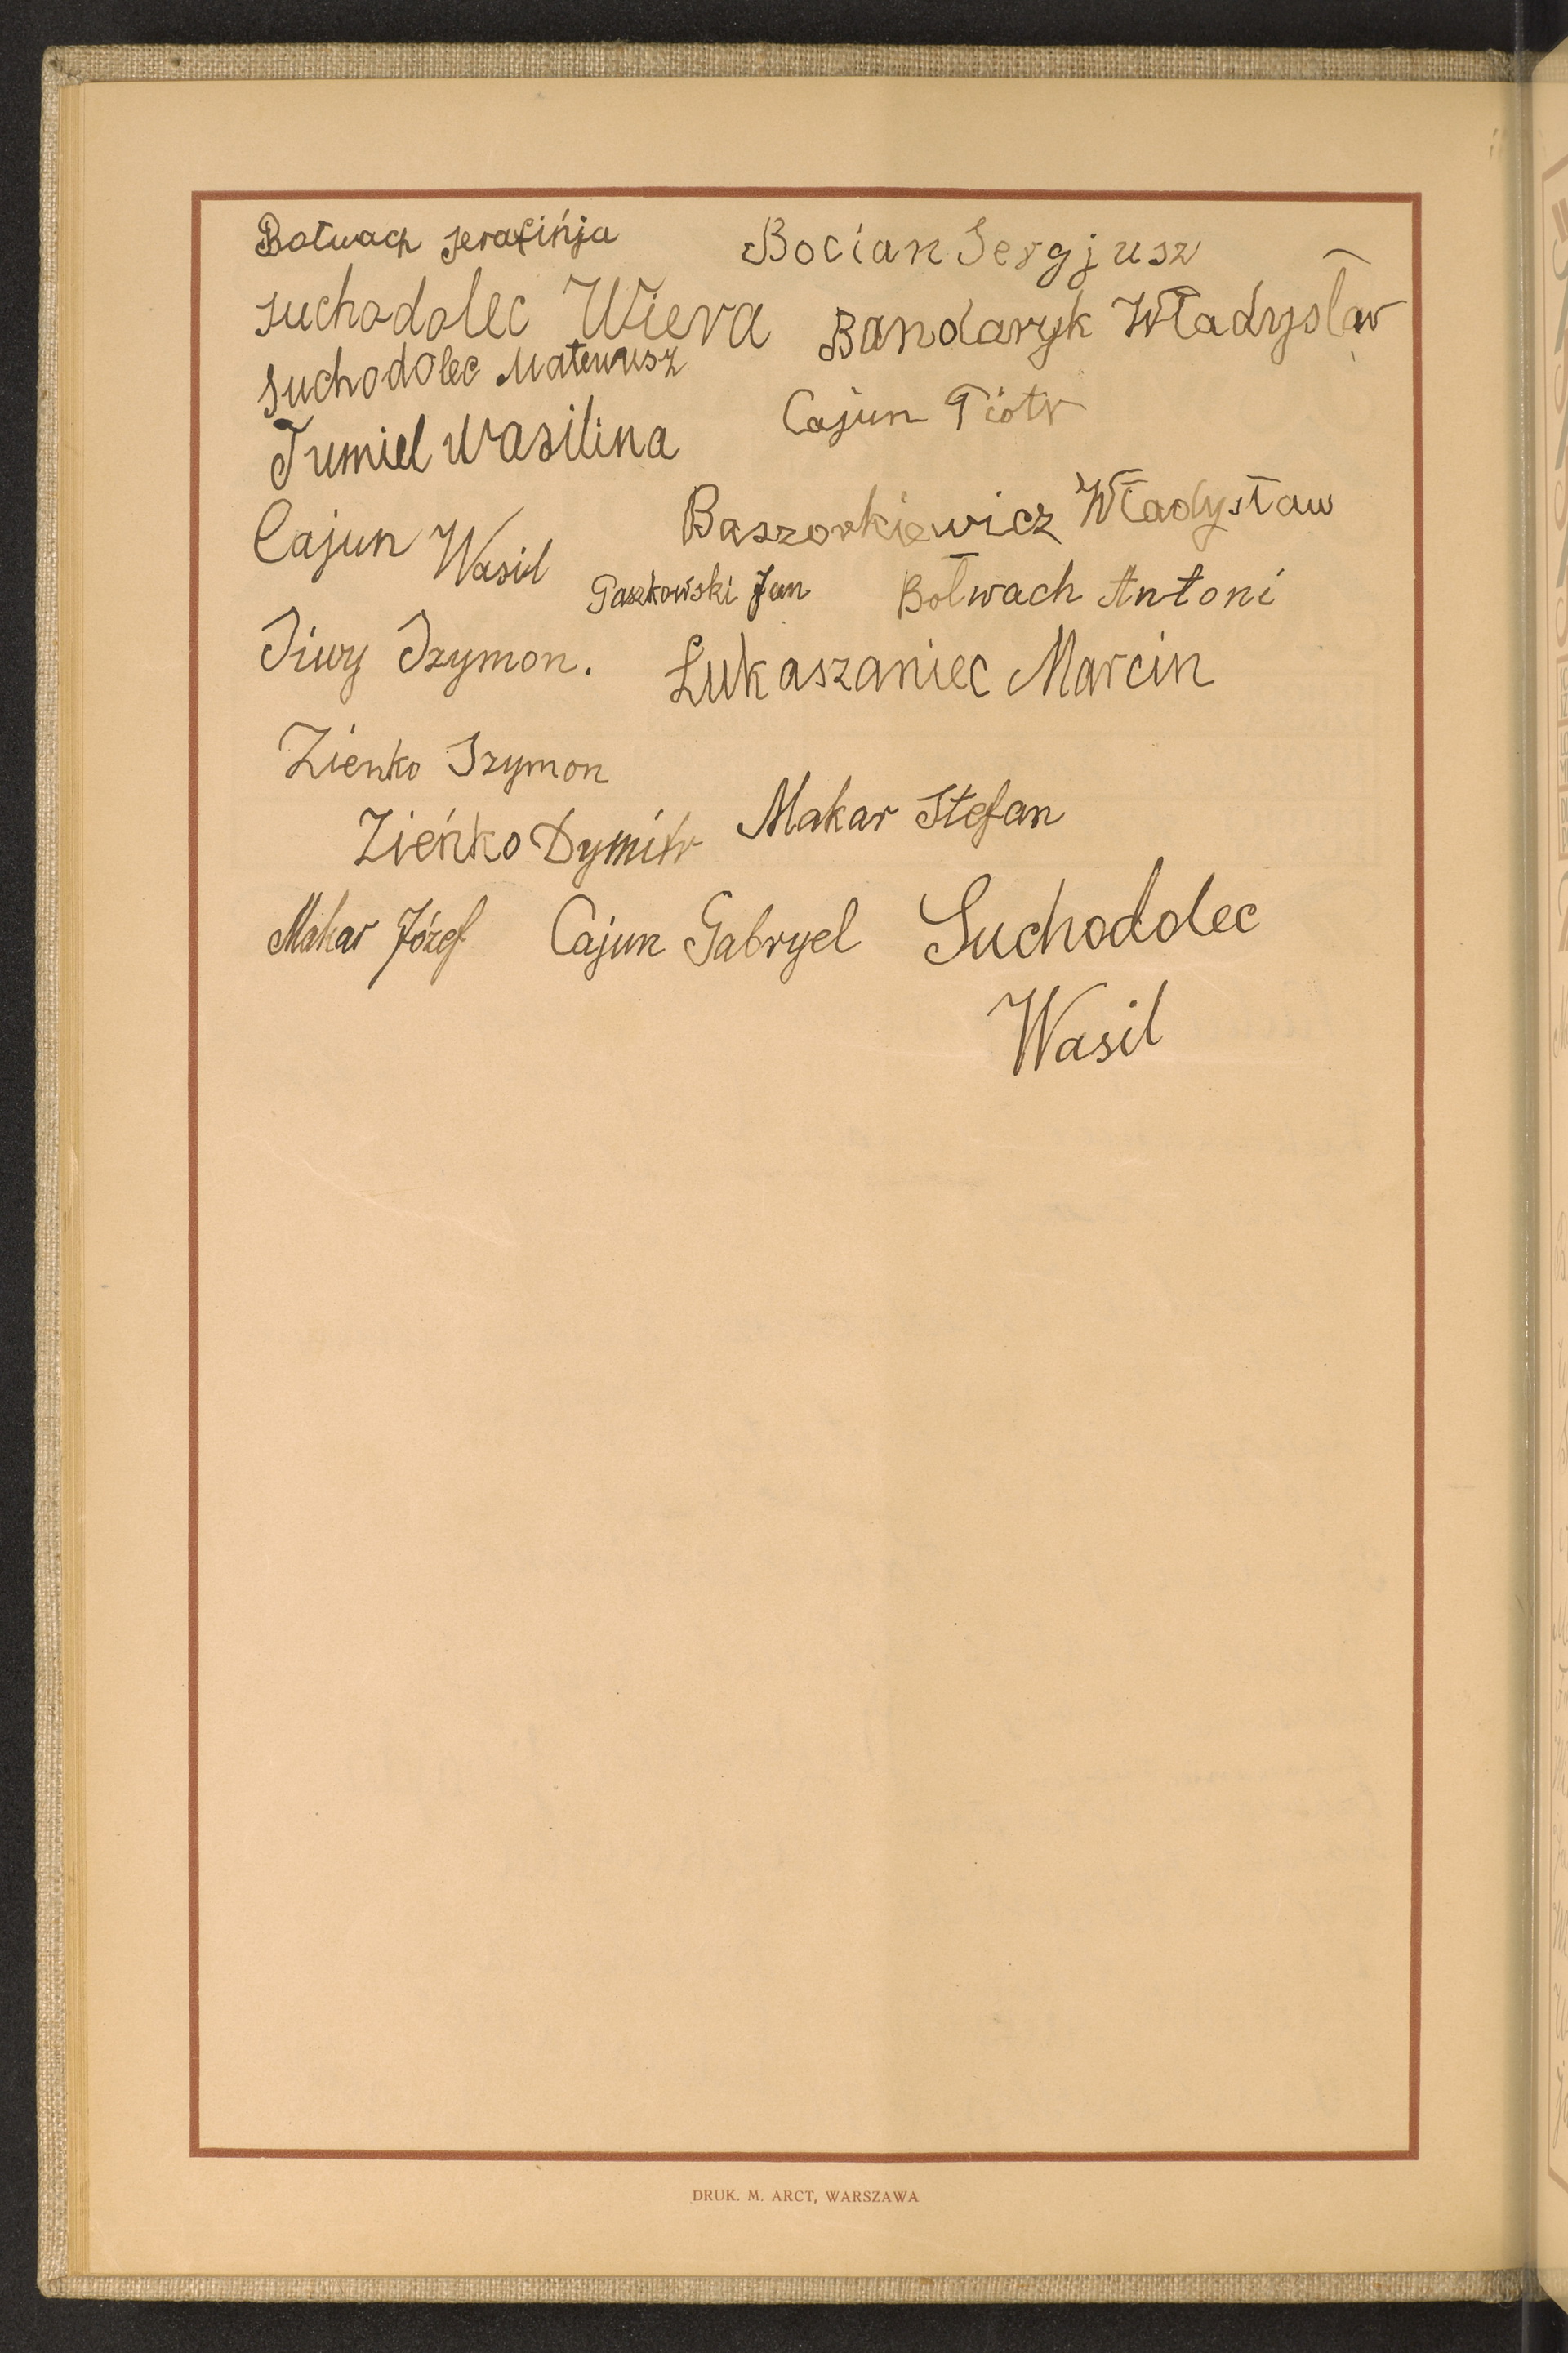 Bołwach Serafińja
Bocian Sergjusz
Suchodolec Wiera
Bandaryk Władysław
Suchodolec Mateusz
Cajun Piotr
Tumiel Wasilina
Baszorkiewicz Władysław
Cajun Wasil
Paszkowski Jan
Bołwach Antoni
Siwy Szymon.
Łukaszaniec Marcin
Zienko Szymon
Zieńko Dymitr
Makar Stefan
Makar Józef
Cajun Gabryel
Suchodolec
Wasil
DRUK. M. ARCT, WARSZAWA